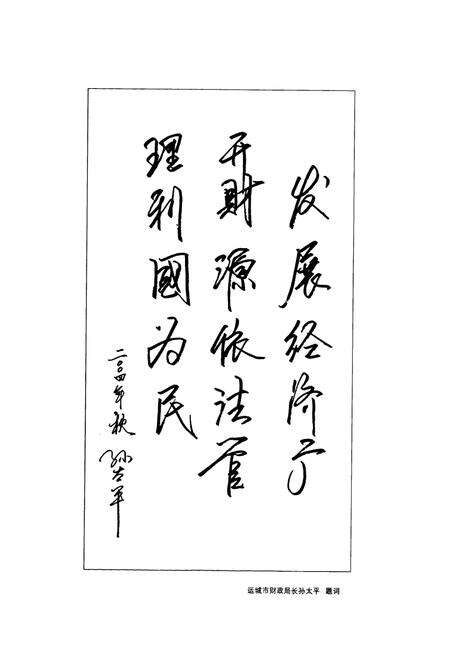 发展经济广
开财源依法管
理利國为民
二〇〇四年秋 孙太平
运城市财政局长孙太平 题词